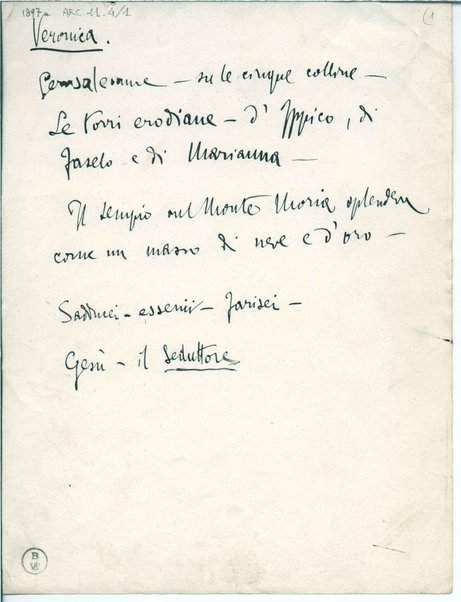 1897. ARC. 21. 4/1
(1
Veronica.
Gerusalemme – su le cinque colline –
Le torri erodiane – d'Ippico, di
Faselo e di Marianna –
Il tempio sul Monte Moria splendeva
come un masso di neve e d'oro –
Sadducei – essenii – Farisei –
Gesù – il Seduttore